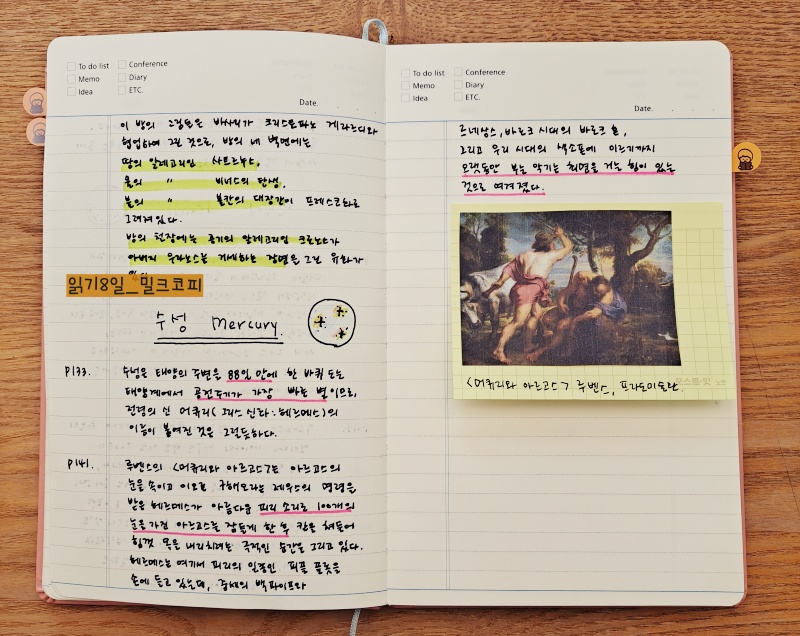 To do list
Conference
Memo
Diary
Idea
ETC.
Date.
이 방의 그림들은 바사리가 크리스토파노 게라르디와
협업하여 그린 것으로, 방의 네 벽면에는
땅의 알레고리인 사투르누스,
물의 〃 비너스의 탄생,
불의 〃 불칸의 대장간이 프레스코화로
그려져있다.
방의 천장에는 공기의 알레고리인 크로노스가
아버지 우라노스를 거세하는 장면을 그린 유화가
읽기8일_밀크코피
수성 Mercury.
P133. 수성은 태양의 주변을 88일 만에 한 바퀴 도는
태양계에서 공전주기가 가장 빠른 별이므로,
전령의 신 머큐리(그리스신화:헤르메스)의
이름이 붙여진 것은 그럴듯하다.
P141. 루벤스의 <머큐리와 아르고스>는 아르고스의
눈을 속이고 이오를 구해오라는 제우스의 명령을
받은 헤르메스가 아름다운 피리 소리로 100개의
눈을 가진 아르고스를 잠들게 한 후 칼을 쳐들어
힘껏 목을 내리치려는 극적인 순간을 그리고 있다.
헤르메스는 여기서 피리의 일종인 피플 플룻을
손에 들고 있는데, 중세의 백파이프와
To do list
Conference
Memo
Diary
Idea
ETC.
Date.
르네상스, 바로크 시대의 바로크 혼,
그리고 우리 시대의 색소폰에 이르기까지
오랫동안 부는 악기는 최면을 거는 힘이 있는
것으로 여겨졌다.
<머큐리와 아르고스> 루벤스, 프라도미술관.